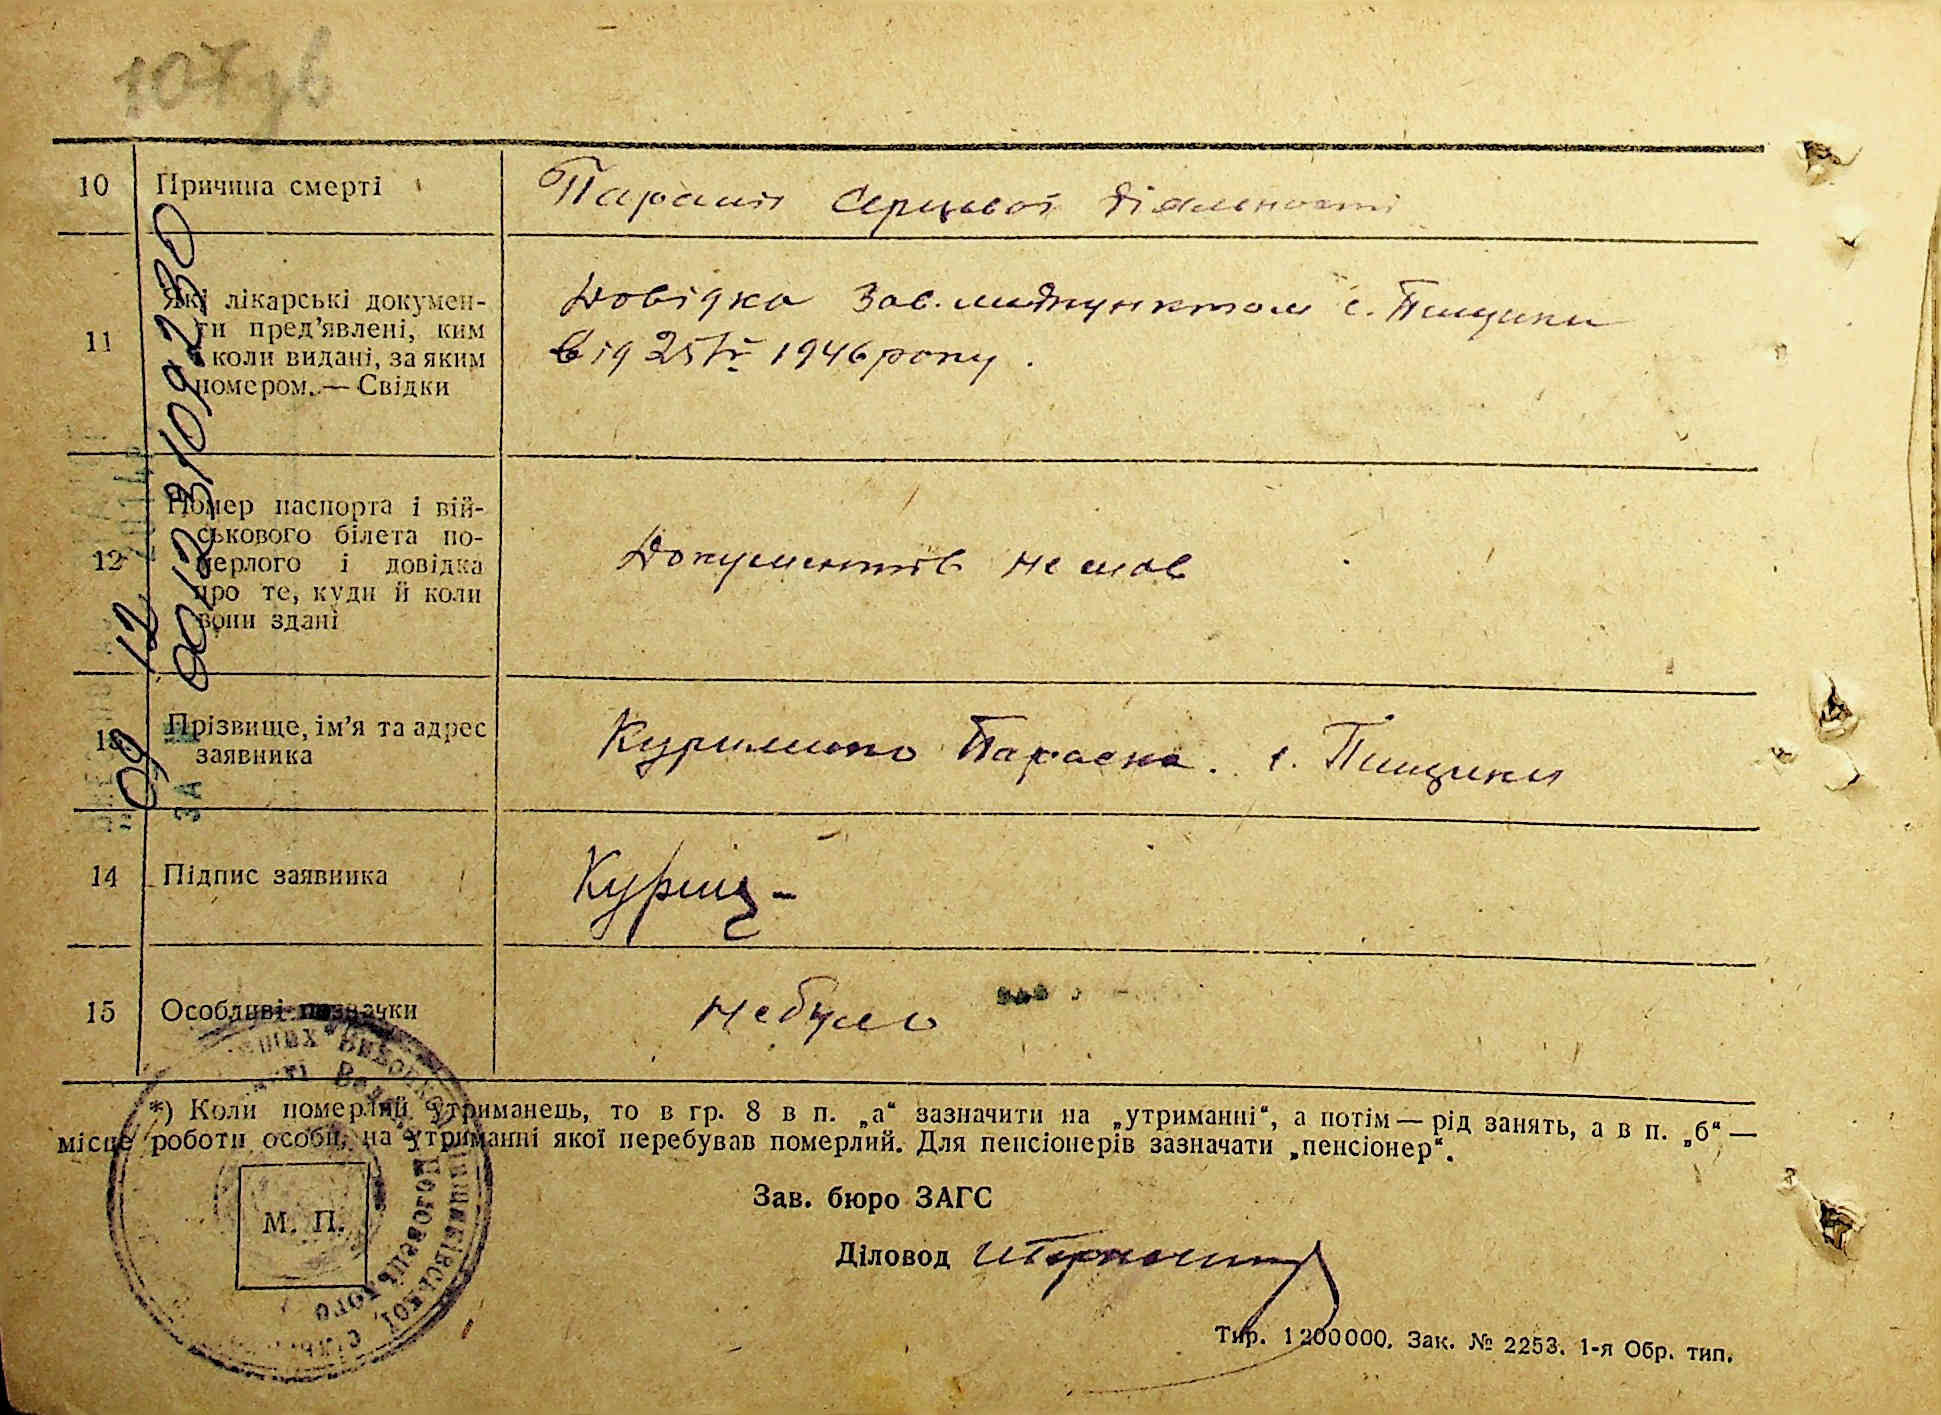 107
10 Причина смерті Параліч Серцевої діяльності
11 Які лікарські докумен-
ти пред’явлені, ким
і коли видані, за яким
номером. — Свідки
Довідка Зав. медпунктом с. Пищики
від 25/IV 1946 року.
12 Номер паспорта і вій-
ськового білета по-
мерлого і довідка
про те, куди й коли
вони здані
Документів не мав
13 Прізвище, ім’я та адрес
заявника
Параска. с. Пищики
14 Підпис заявника
15 Особливі позначки Небуло
09 12
0012 3109230
ЗА
*) Коли померлий утриманець, то в гр. 8 в п. „а“ зазначити на „утриманні“, а потім — рід занять, а в п. „б“ —
місце роботи особи, на утриманні якої перебував померлий. Для пенсіонерів зазначати „пенсіонер“.
М. П.
Зав. бюро ЗАГС
Діловод
Тир. 1200000. Зак. № 2253. 1-я Обр. тип.